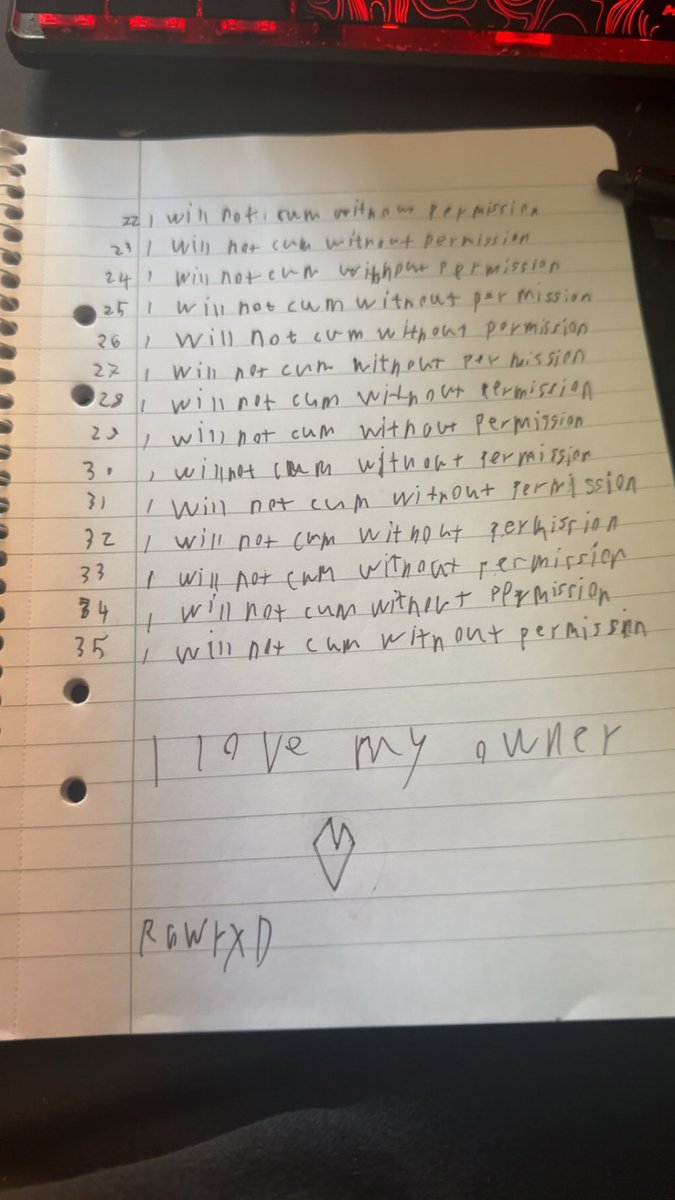 22 I will not cum without permission
23 I will not cum without permission
24 I will not cum without permission
25 I will not cum without permission
26 I will not cum without permission
27 I will not cum without permission
28 I will not cum without permission
29 I will not cum without permission
30 I will not cum without permission
31 I will not cum without permission
32 I will not cum without permission
33 I will not cum without permission
34 I will not cum without permission
35 I will not cum without permission
I love my owner
RawrXD